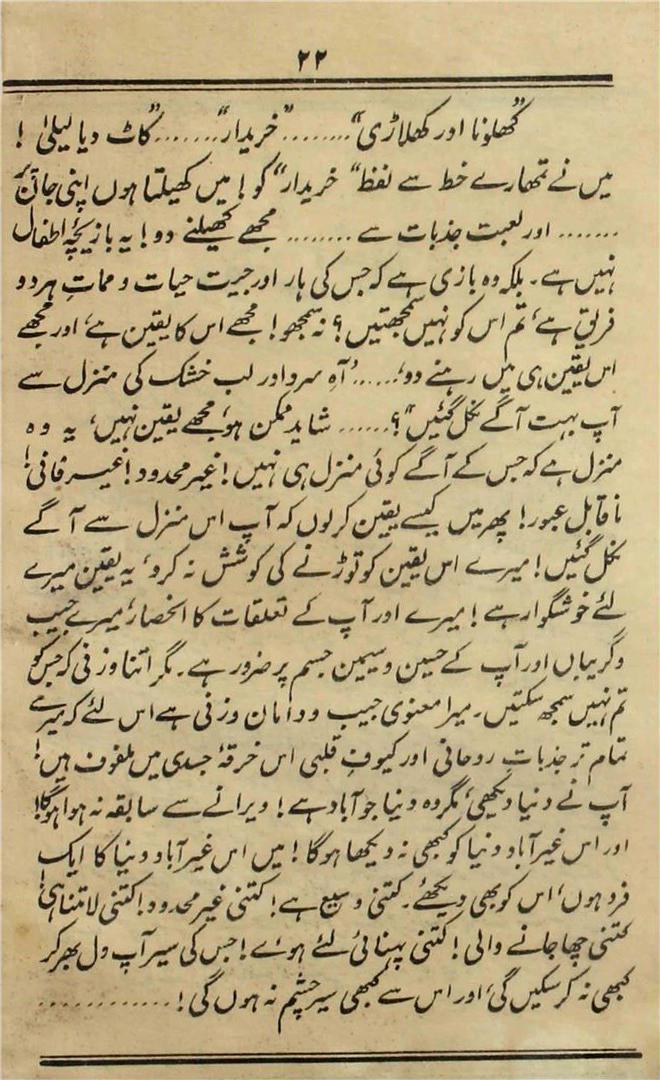 ۲۲
”کھلونا اور کھلاڑی“........”خریدار“.......”کاٹ دیا لیلیٰ !
میں نے تمھارے خط سے لفظ ”خریدار“ کو! میں کھیلتا ہوں اپنی جان پر
....... اور لعبت جذبات سے ........ مجھے کھیلنے دو! یہ بازیچۂ اطفال
نہیں ہے۔ بلکہ وہ بازی ہے کہ جس کی ہار اور جیت حیات و مماتِ ہر دو
فریق ہے، تم اس کو نہیں سمجھتیں؟ نہ سمجھو! مجھے اس کا یقین ہے، اور مجھے
اس یقین ہی میں رہنے دو،......”آہِ سرد اور لب خشک کی منزل سے
آپ بہت آگے نکل گئیں“؟...... شاید ممکن ہو، مجھے یقین نہیں، یہ وہ
منزل ہے کہ جس کے آگے کوئی منزل ہی نہیں! غیر محدود! غیر فانی!
ناقابل عبور! پھر میں کیسے یقین کر لوں کہ آپ اس منزل سے آگے
نکل گئیں! میرے اس یقین کو توڑنے کی کوشش نہ کرو، یہ یقین میرے
لئے خوشگوار ہے! میرے اور آپ کے تعلقات کا انحصار، میرے جیب
و گریباں اور آپ کے حسین و سیمین جسم پر ضرور ہے۔ مگر اتنا وزنی کہ جس کو
تم نہیں سمجھ سکتیں۔ میرا معنوی جیب و دامان وزنی ہے اس لئے کہ میرے
تمام تر جذباتِ روحانی اور کیوفِ قلبی اس خرقۂ جسدی میں ملفوف ہیں!
آپ نے دنیا دیکھی، مگر وہ دنیا جو آباد ہے! ویرانے سے سابقہ نہ ہوا ہوگا!
اور اس غیر آباد دنیا کو کبھی نہ دیکھا ہوگا! میں اس غیر آباد دنیا کا ایک
فرد ہوں، اس کو بھی دیکھئے۔ کتنی وسیع ہے! کتنی غیر محدود! کتنی لا متناہی!
کتنی چھا جانے والی! کتنی پہنائی لئے ہوئے! جس کی سیر آپ دل بھر کر
کبھی نہ کر سکیں گی، اور اس سے کبھی سیر چشم نہ ہوں گی! ............